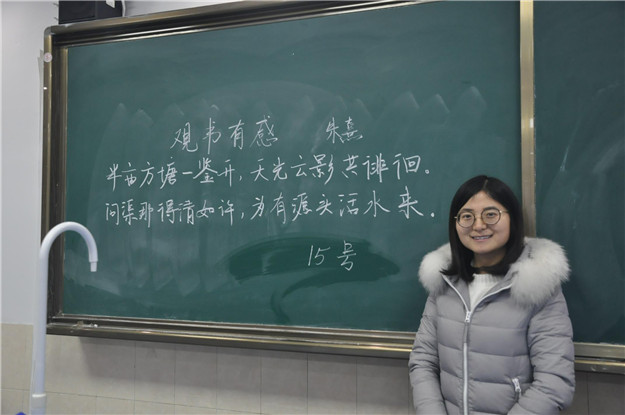 观书有感 朱熹
半亩方塘一鉴开，天光云影共徘徊。
问渠那得清如许，为有源头活水来。
15号